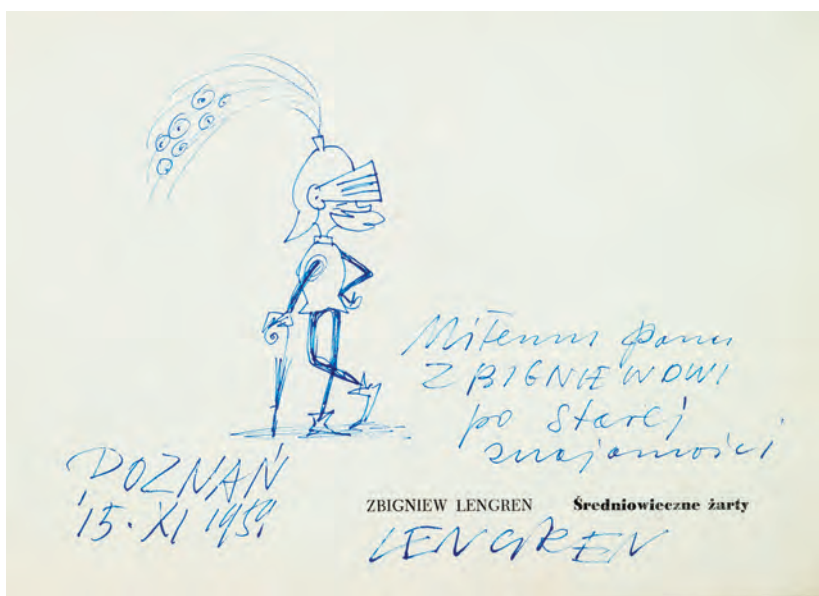 Miłemu Panu
ZBIGNIEWOWI
po starej
znajomości
POZNAŃ
15. XI 1959
ZBIGNIEW LENGREN Średniowieczne żarty
LENGREN